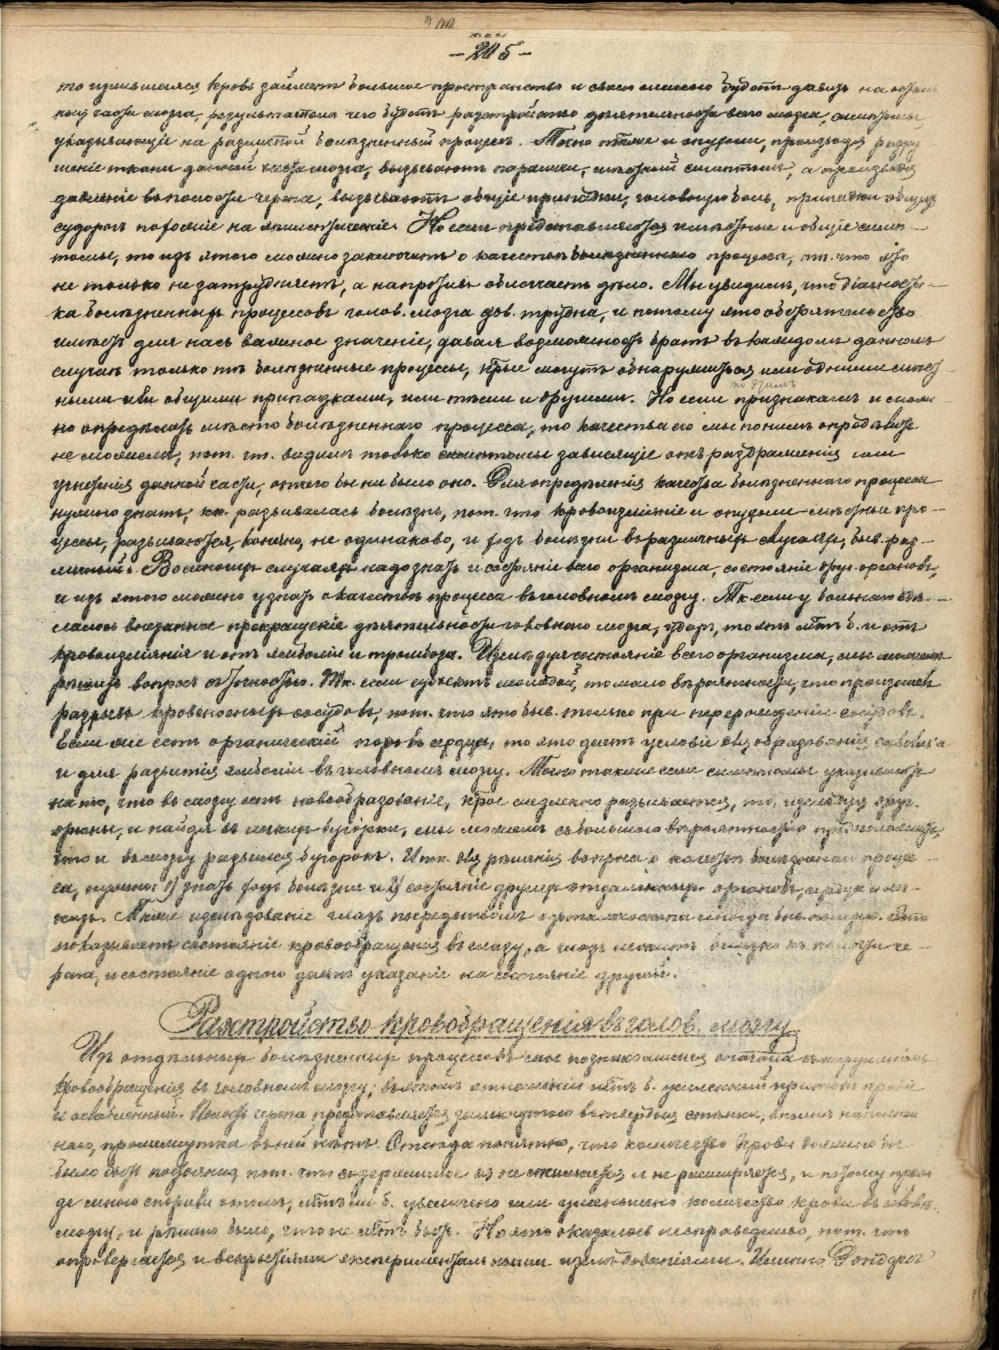 -205-
то излившаяся кровь займетъ большое пространство и своею массою будетъ давить на
часть мозга, результатомъ чего будетъ разстройство дѣятельности всего мозга, симптомы,
указывающіе на разлитой болѣзненный процессъ. Точно также и опухоли, производя разру-
шеніе ткани данной части мозга, вызываютъ мѣстный симптомъ, а производя
давленіе въ полости черепа, вызываютъ общіе припадки, головную боль, припадки общихъ
судорогъ похожіе на Но если представляются мѣстные и общіе симп-
томы, то изъ этого можно заключить о качествѣ болѣзненнаго процесса, пт. что это
не только не затрудняетъ, а напротивъ облегчаетъ дѣло. Мы увидимъ, что діагности-
ка болѣзненныхъ процессовъ голов. мозга дов. трудна, и потому это обстоятельство
имѣетъ для насъ важное значеніе, давая возможность брать въ каждомъ данномъ
случаѣ только тѣ болѣзненные процессы, кт͡рые могутъ обнаружиться или одними мѣст-
ными или общими припадками, или тѣми и другими. Но если по этимъ признакамъ и мож-
но опредѣлить мѣсто болѣзненнаго процесса, то качества его мы по нимъ опредѣлить
не можемъ, пот. чт. видимъ только симптомы зависящіе отъ раздраженія или
угнетенія данной части, отчего бы ни было оно. Для опредѣленія качества болѣзненнаго процесса
нужно знать, кк. развивалась болѣзнь, пот. что кровоизліяніе и опухоли мѣстные про-
цессы, развиваются, конечно, не одинаково, и ходъ болѣзни въ различныхъ случаяхъ быв. раз-
личный. Во многихъ случаяхъ надо знать и состояніе всего организма, состояніе друг. органовъ,
и изъ этого можно узнать о качествѣ процесса въ головномъ мозгу. Тк. если у больнаго сдѣ-
лалось внезапное прекращеніе дѣятельности головного мозга, ударъ, то это мт͡ъ б. и отъ
кровоизліянія и отъ эмболіи и тромбоза. Изслѣдуя состояніе всего организма, мы можемъ
рѣшить вопросъ съ точностью. Тк. если субъектъ молодой, то мало вѣроятности, что произошелъ
разрывъ кровеносныхъ сосудовъ, пот. что это быв. только при перерожденіи сосудовъ.
Если же есть органическій порокъ сердца, то это даетъ условіе для образованія
и для развитія эмболіи въ головномъ мозгу. Точно также если симптомы указываютъ
на то, что въ мозгу есть новообразованіе, кт͡рое медленно развивается, то, изслѣдуя друг.
органы, и найдя въ легкихъ бугорки, мы можемъ съ большою вѣроятностью предположить,
что и въ мозгу развился бугорокъ. Итк. для рѣшенія вопроса о качествѣ болѣзненнаго процес-
са, нужно: 1) знать ходъ болѣзни и 2) состояніе другихъ отдаленныхъ органовъ, сердца и лег-
кихъ. Также изслѣдованіе глазъ посредствомъ офтальмоскопа иногда быв. полезно. Это
показываетъ состояніе кровообращенія въ глазу, а глазъ лежитъ близко къ полости че-
репа, и состояніе одного даетъ указаніе на состояніе другой.
Разстройство кровобращенія въ голов. мозгу
Изъ отдѣльныхъ болѣзненныхъ процессовъ мы познакомимся сначала съ нарушеніемъ
кровообращенія въ головномъ мозгу; въ этомъ отношеніи мт͡ъ б. усиленный притокъ крови
и ослабленный. Полость черепа представляется замкнутою въ твердыя стѣнки, вполнѣ наполнен-
ною, промежутка въ ней нѣтъ. Отсюда понятно, что количество крови должно бы
было быть постоянно, пот. что содержимое ея не сжимается и не расширяется, и потому преж-
де много спорили о томъ, мт͡ъ ли б. увеличено или уменьшено количество крови въ головн.
мозгу, и рѣшено было, что не мт͡ъ быть. Но это оказалось несправедливо, пот. что
опровергается и вскрытіями и экспериментальными изслѣдованіями. Именно Дондерсъ